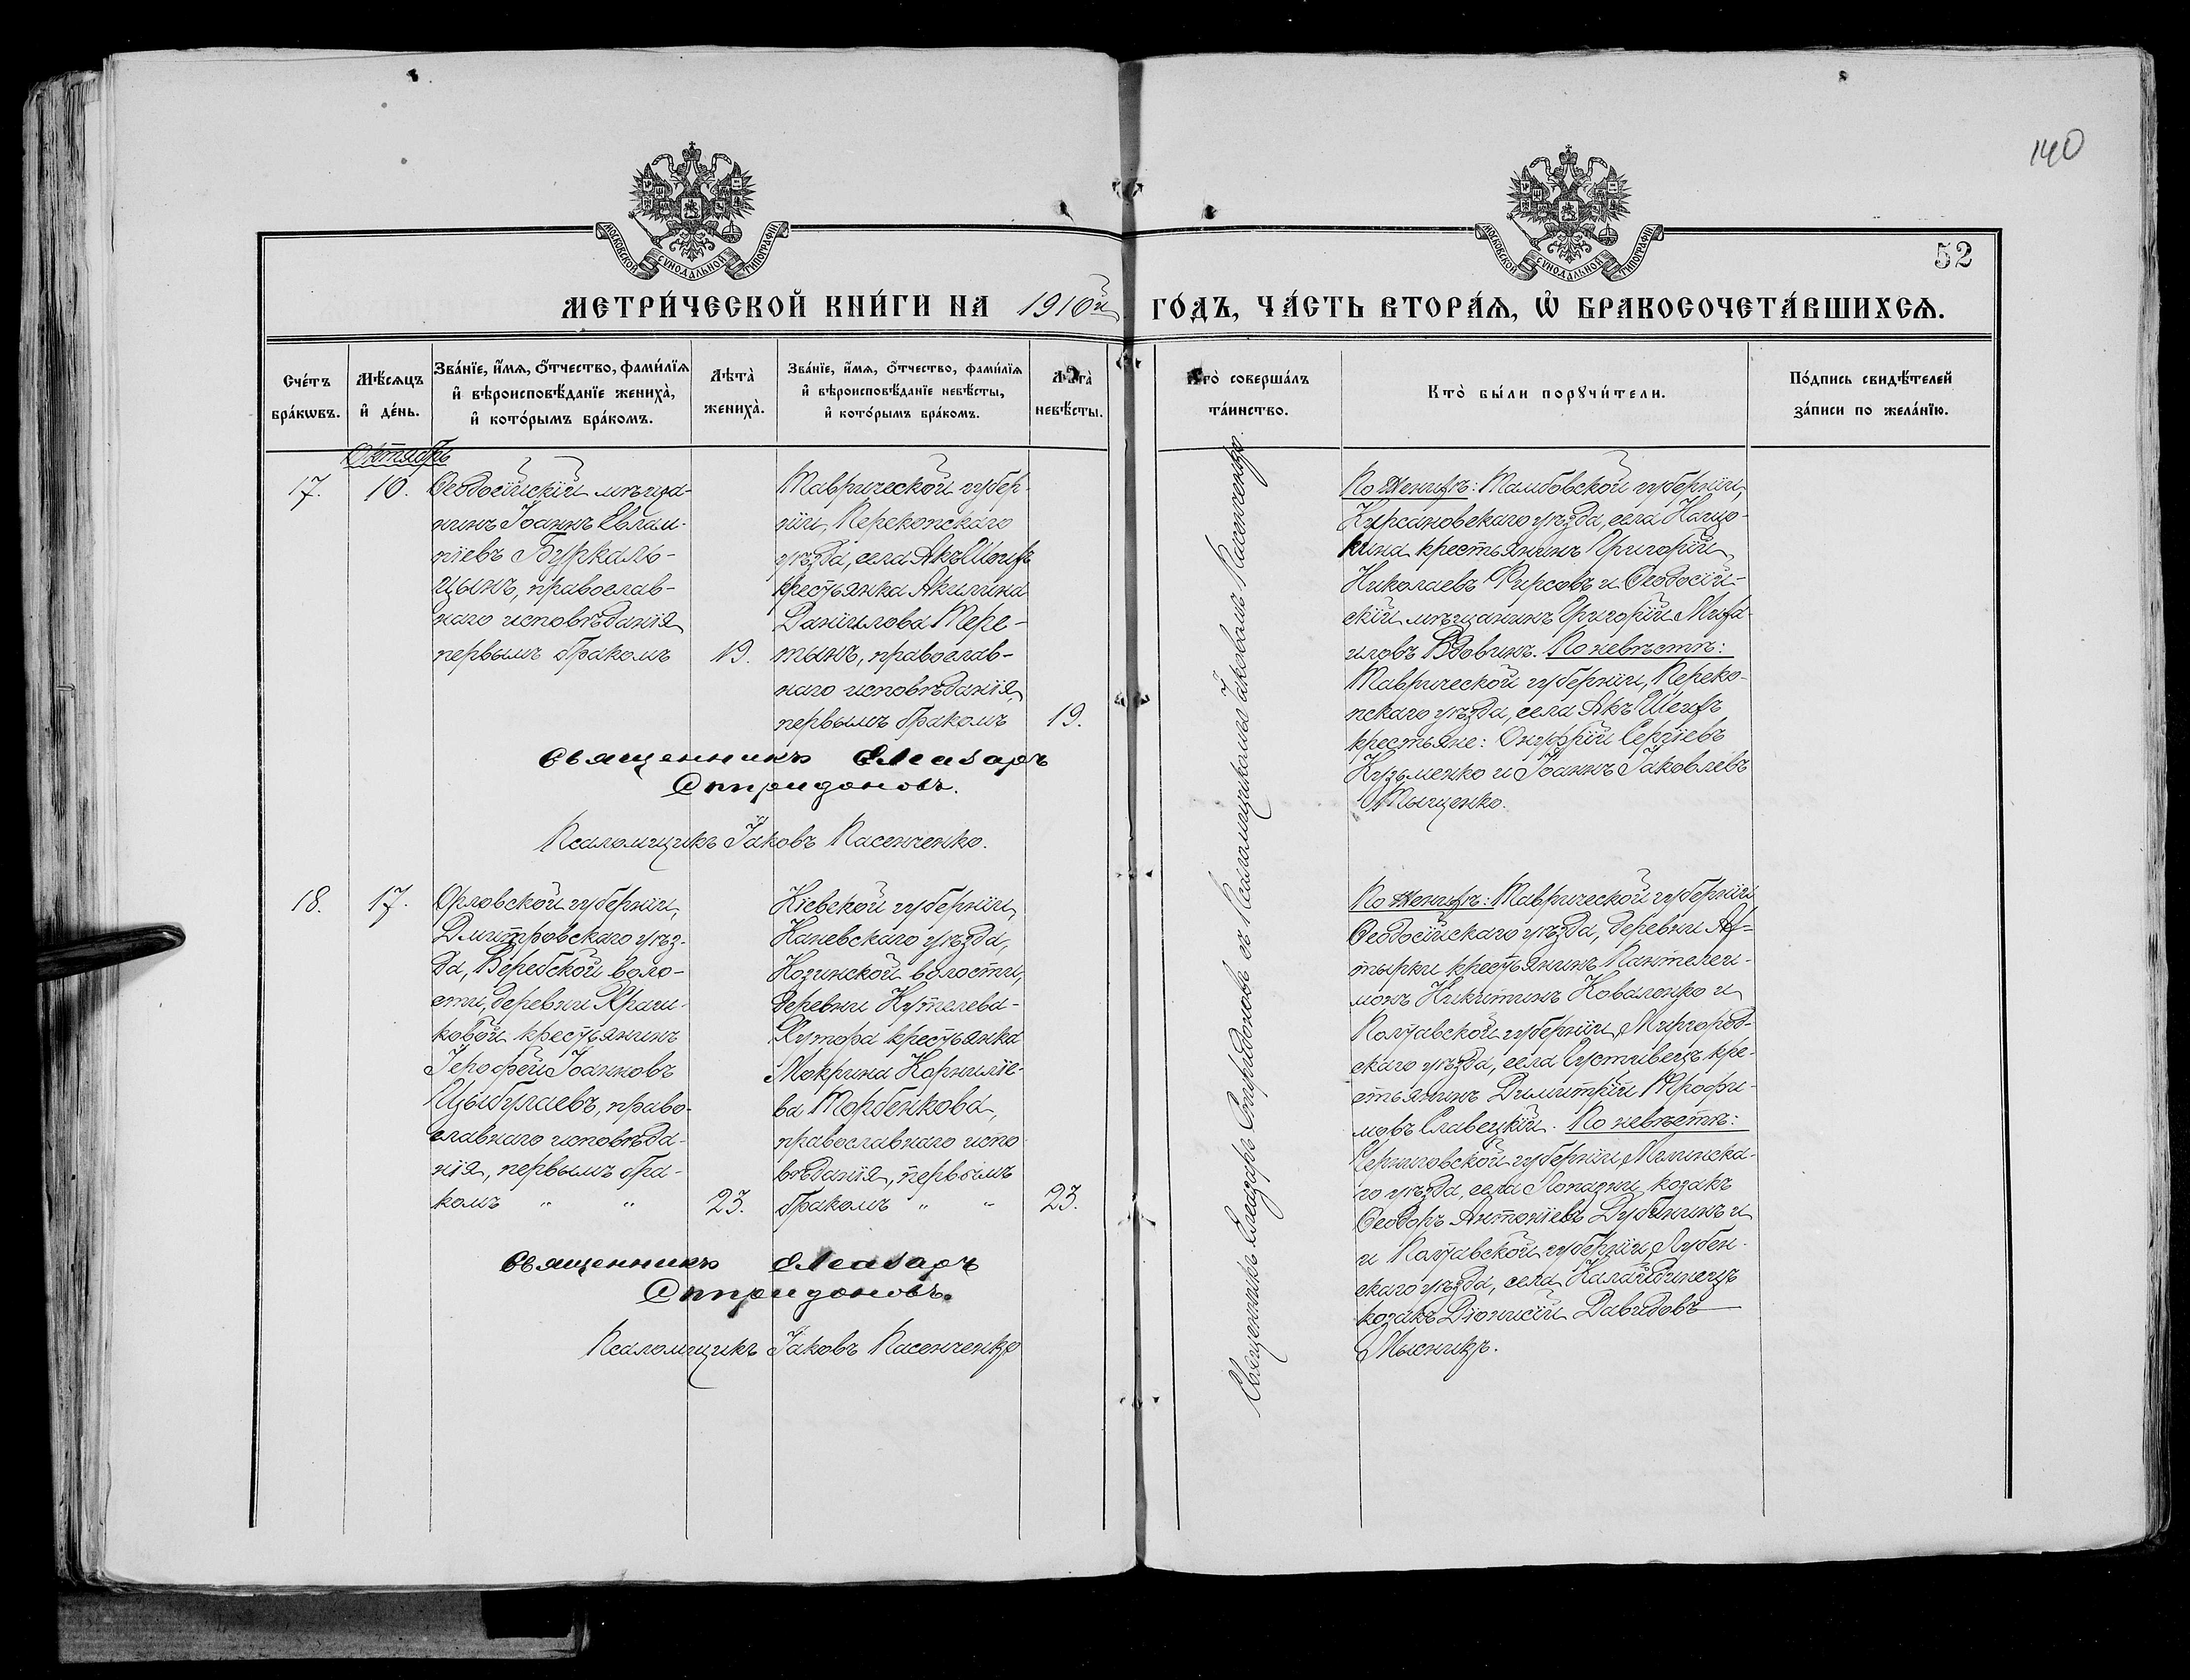 140
МОСКОВСКОЙ СѴНОДАЛЬНОЙ ТИПОГРАФІИ
МОСКОВСКОЙ СѴНОДАЛЬНОЙ ТИПОГРАФІИ
52
МЕТРИ́ЧЕСКОЙ КНИ́ГИ НА 1910й ГО́ДЪ, ЧА́СТЬ ВТОРА́Ѧ, Ѽ БРАКОСОЧЕТА́ВШИХСѦ.
Сче́тъ
бра́кωвъ.
Мѣ́сяцъ
и҆ де́нь.
Зва́нїе, и҆́мѧ, ѻ҆́тчество, фами́лїѧ
и҆ вѣроисповѣ́данїе жениха̀,
и҆ кото́рымъ бра́комъ.
Лѣ́та̀
жениха̀.
Зва́нїе, и҆́мѧ, ѻ҆́тчество, фами́лїѧ
и҆ вѣроисповѣ́данїе невѣ́сты,
и҆ кото́рымъ бра́комъ.
Лѣ́та̀
невѣ́сты.
Кто̀ соверша́лъ
та́инство.
Кто̀ бы́ли порꙋчи́тели.
По́дпись свидѣ́телей
за́писи по жела́нїю.
Октябрь
17.
10.
Ѳеодосійскій мѣща-
нинъ Іоаннъ Евлам-
піевъ Буркаль-
цынъ, православ-
наго исповѣданія
первымъ бракомъ
19.
Таврической губер-
ніи, Перекопскаго
уѣзда, села Акъ Шеихъ
крестьянка Акилина
Даніилова Тере-
тынъ, православ-
наго исповѣданія,
первымъ бракомъ
19.
Священникъ Елеазаръ
Спиридоновъ.
Псаломщикъ Іаковъ Пасенченко.
Священникъ Елеазаръ Спиридоновъ съ Псаломщикомъ Іаковомъ Пасенченко.
По женихѣ: Тамбовской губерніи,
Кирсановскаго уѣзда, села Нащо-
кина крестьянинъ Григорій
Николаевъ Фирсовъ и Ѳеодосій-
скій мѣщанинъ Григорій Миха-
иловъ Вдовинъ. По невѣстѣ:
Таврической губерніи, Переко-
пскаго уѣзда, села Акъ Шеихъ
крестьяне: Онуфрій Сергіевъ
Кузьменко и Іоаннъ Іаковлевъ
Тыщенко.
18.
17.
Орловской губерніи,
Дмитровскаго уѣз-
да, Веребской воло-
сти, деревни
ковой крестьянинъ
Іерофей Іоанновъ
Цыбулаевъ, право-
славнаго исповѣда-
нія, первымъ бра-
комъ " "
23.
Кіевской губерніи
Каневскаго уѣзда,
Козинской волости,
деревни Кутелева-
Хутора крестьянка
Мокрина Корниліе-
ва Торбенкова,
православнаго испо
вѣданія, первымъ
бракомъ " "
23.
Священникъ Елеазаръ
Спиридоновъ.
Псаломщикъ Іаковъ Пасенченко
По женихѣ: Таврической губерніи
Ѳеодосійскаго уѣзда, деревни Ах-
тырки крестьянинъ Пантелеи-
монъ Никитинъ Коваленко и
Полтавской губерніи, Миргород-
скаго уѣзда, села Устивецъ кре-
стьянинъ Димитрій Трофи-
мовъ Славецкій. По невѣстѣ:
Черниговской губерніи, Мглинска-
го уѣзда, села Лопазни, козакъ
Ѳеодоръ Антоніевъ Дубининъ и
и Полтавской губерніи, Лубен-
скаго уѣзда, села Калайдинецъ
козакъ Діонисій Давидовъ
Мысникъ.